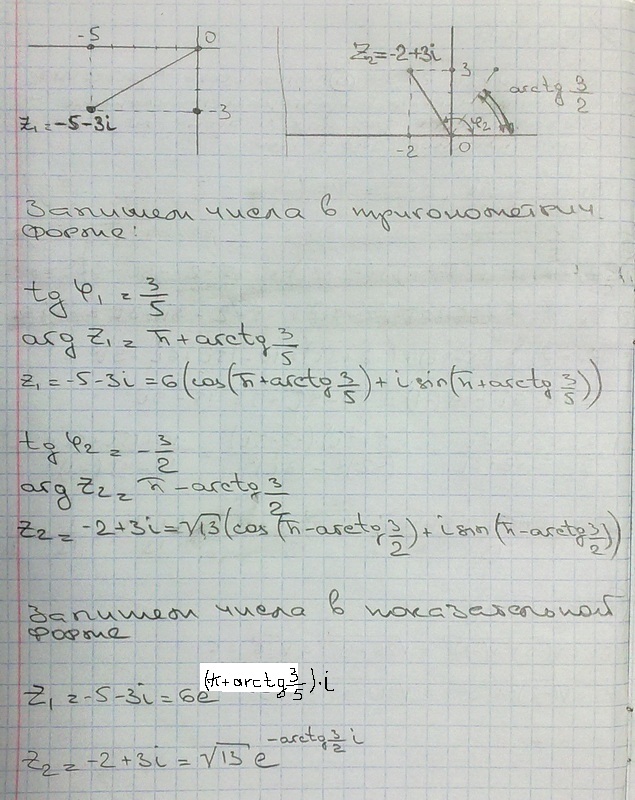 -5 0
-3
z₁=-5-3i
z₂=-2+3i
3
arctg 3/2
φ₂
-2 0
Запишем числа в тригонометрич.
форме:
tg φ₁ = 3/5
arg z₁ = π + arctg 3/5
z₁ = -5-3i = 6(cos(π+arctg 3/5) + i sin(π+arctg 3/5))
tg φ₂ = -3/2
arg z₂ = π - arctg 3/2
z₂ = -2+3i = √13(cos(π-arctg 3/2) + i sin(π-arctg 3/2))
Запишем числа в показательной
форме
z₁ = -5-3i = 6e^(π+arctg 3/5)·i
z₂ = -2+3i = √13 e^-arctg 3/2 i